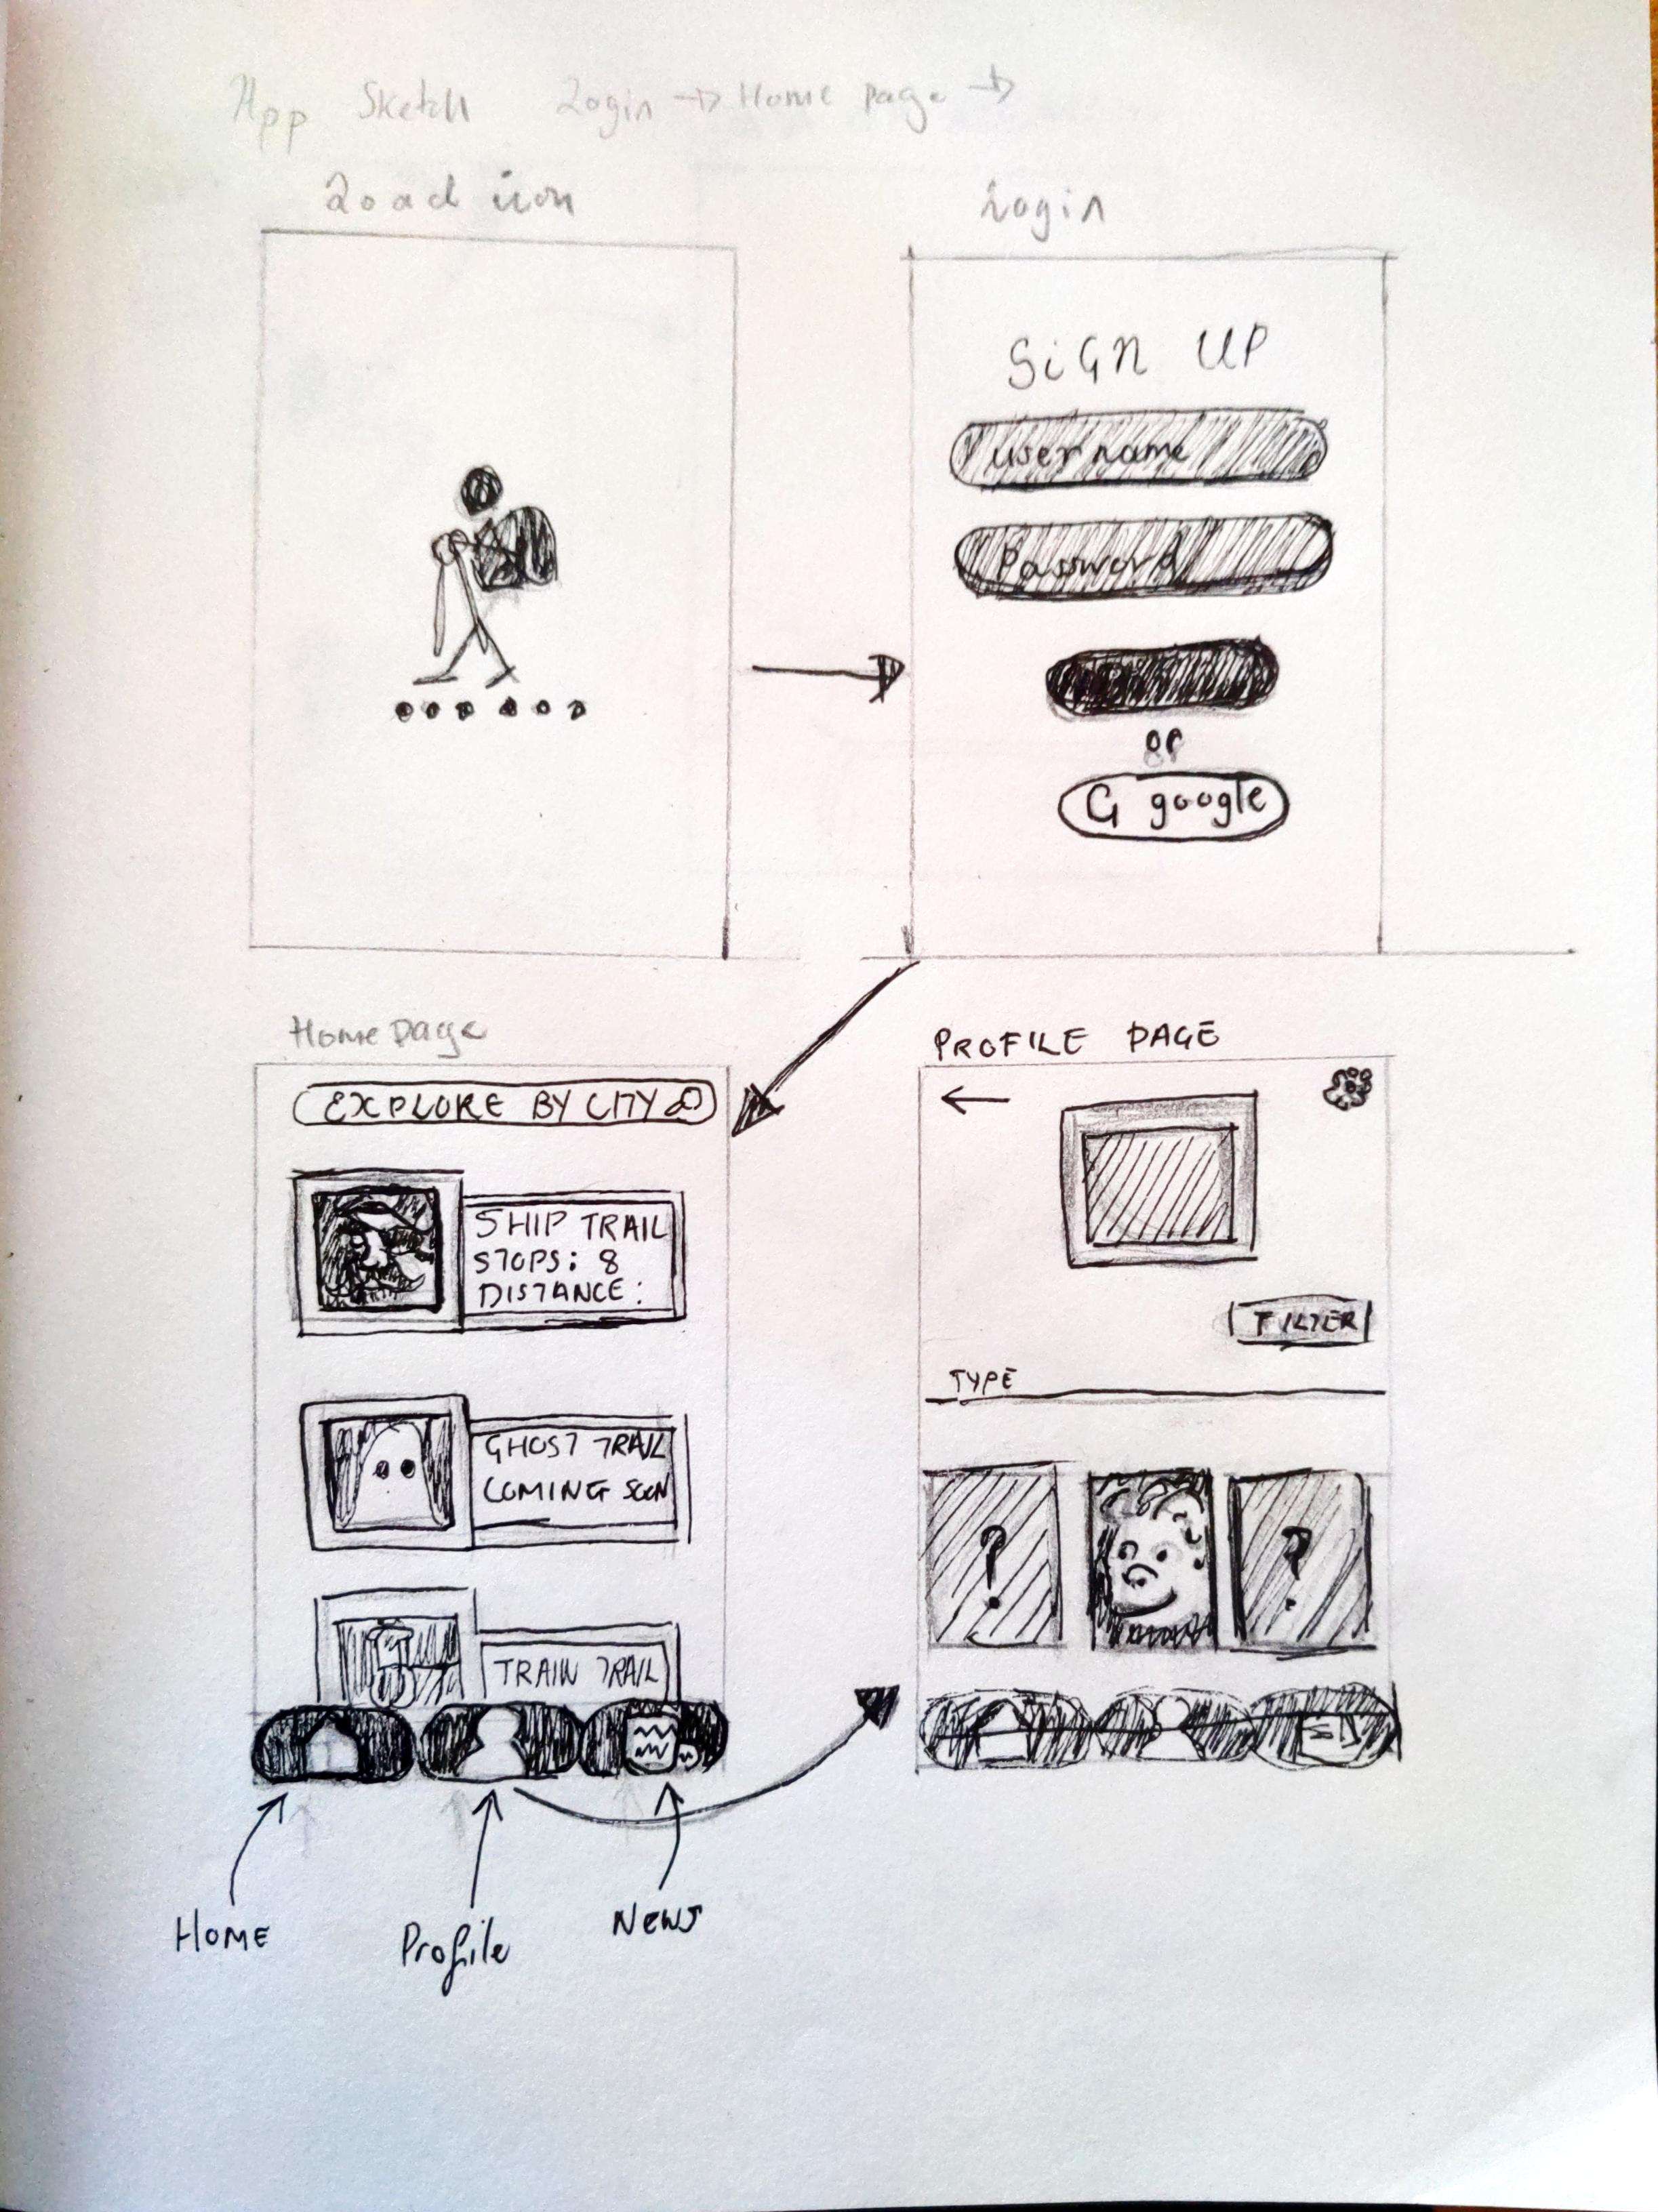 App Sketch Login → Home page →
Load icon
Login
SiGN UP
username
Password
or
G google
Home Page
EXPLORE BY CITY
SHIP TRAIL
STOPS: 8
DISTANCE:
GHOST TRAIL
COMING SOON
TRAIN TRAIL
HOME
Profile
News
PROFILE PAGE
FILTER
TYPE
?
?